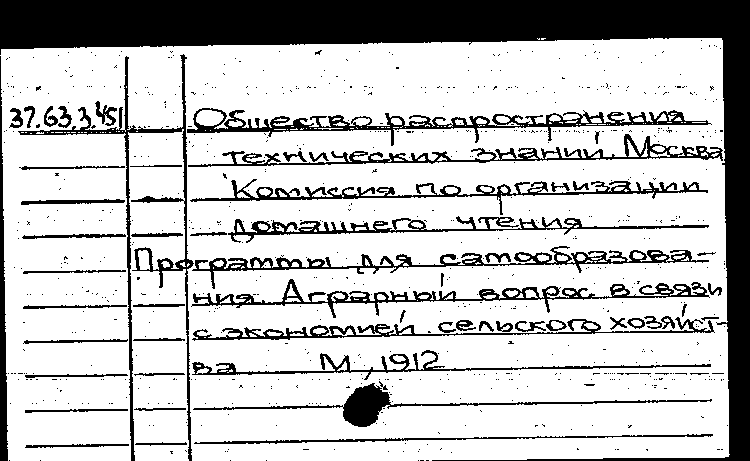 37.63.3.451 Общество распространения
технических знаний. Москва
Комиссия по организации
домашнего чтения
Программы для самообразова-
ния. Аграрный вопрос в связи
с экономией сельского хозяйст-
ва М, 1912